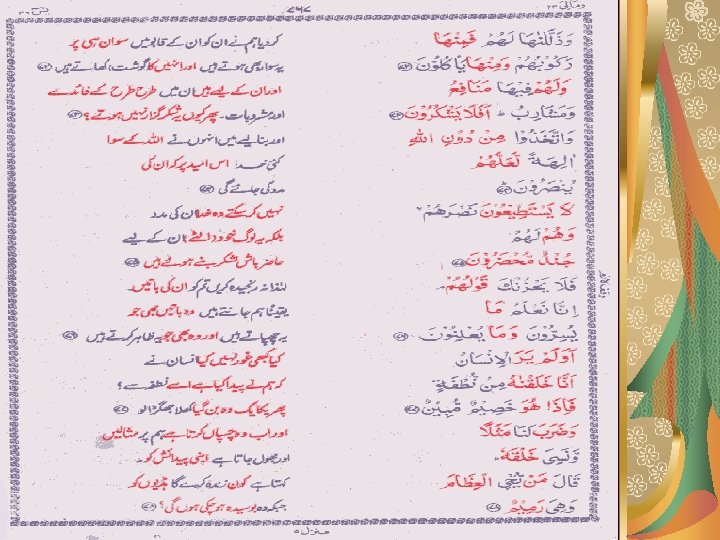 ومالی ۲۳
۷۶۷
یٰسٓ ۳۶
وَذَلَّلْنٰهَا لَهُمْ فَمِنْهَا
رَكُوْبُهُمْ وَمِنْهَا يَأْكُلُوْنَ ﴿۷۲﴾
وَلَهُمْ فِيْهَا مَنَافِعُ
وَمَشَارِبُ ؕ اَفَلَا يَشْكُرُوْنَ ﴿۷۳﴾
وَاتَّخَذُوْا مِنْ دُوْنِ اللّٰهِ
اٰلِهَةً لَّعَلَّهُمْ
يُنْصَرُوْنَ ﴿۷۴﴾
لَا يَسْتَطِيْعُوْنَ نَصْرَهُمْ ۙ
وَهُمْ لَهُمْ
جُنْدٌ مُّحْضَرُوْنَ ﴿۷۵﴾
فَلَا يَحْزُنْكَ قَوْلُهُمْ ۘ
اِنَّا نَعْلَمُ مَا
يُسِرُّوْنَ وَمَا يُعْلِنُوْنَ ﴿۷۶﴾
اَوَلَمْ يَرَ الْاِنْسَانُ
اَنَّا خَلَقْنٰهُ مِنْ نُّطْفَةٍ
فَاِذَا هُوَ خَصِيْمٌ مُّبِيْنٌ ﴿۷۷﴾
وَضَرَبَ لَنَا مَثَلًا
وَّنَسِيَ خَلْقَهٗ ؕ
قَالَ مَنْ يُّحْيِ الْعِظَامَ
وَهِيَ رَمِيْمٌ ﴿۷۸﴾
کردیا ہم نے ان کو ان کے قابو میں سو ان ہی پر
یہ سوار بھی ہوتے ہیں اور انہیں کا گوشت کھاتے ہیں ﴿۷۲﴾
اور ان کے لیے ہیں ان میں طرح طرح کے فائدے
اور مشروبات۔ پھر کیوں یہ شکر گزار نہیں ہوتے؟ ﴿۷۳﴾
اور بنا لیے ہیں انہوں نے اللہ کے سوا
کئی خدا اس امید پر کہ ان کی
مدد کی جائے گی ﴿۷۴﴾
نہیں کر سکتے وہ خدا ان کی مدد
بلکہ یہ لوگ خود ان کے لیے
حاضر باش لشکر بنے ہوئے ہیں ﴿۷۵﴾
لہٰذا نہ رنجیدہ کریں تم کو ان کی باتیں۔
یقیناً ہم جانتے ہیں وہ باتیں بھی جو
یہ چھپاتے ہیں اور وہ بھی جو یہ ظاہر کرتے ہیں ﴿۷۶﴾
کیا کبھی غور نہیں کیا انسان نے
کہ ہم نے پیدا کیا ہے اسے نطفے سے؟
پھر یکایک وہ بن گیا کھلا جھگڑالو ﴿۷۷﴾
اور اب وہ چسپاں کرتا ہے ہم پر مثالیں
اور بھول جاتا ہے اپنی پیدائش کو۔
کہتا ہے کون زندہ کرے گا ہڈیوں کو
جبکہ وہ بوسیدہ ہو چکی ہوں گی؟ ﴿۷۸﴾
منزل ۵